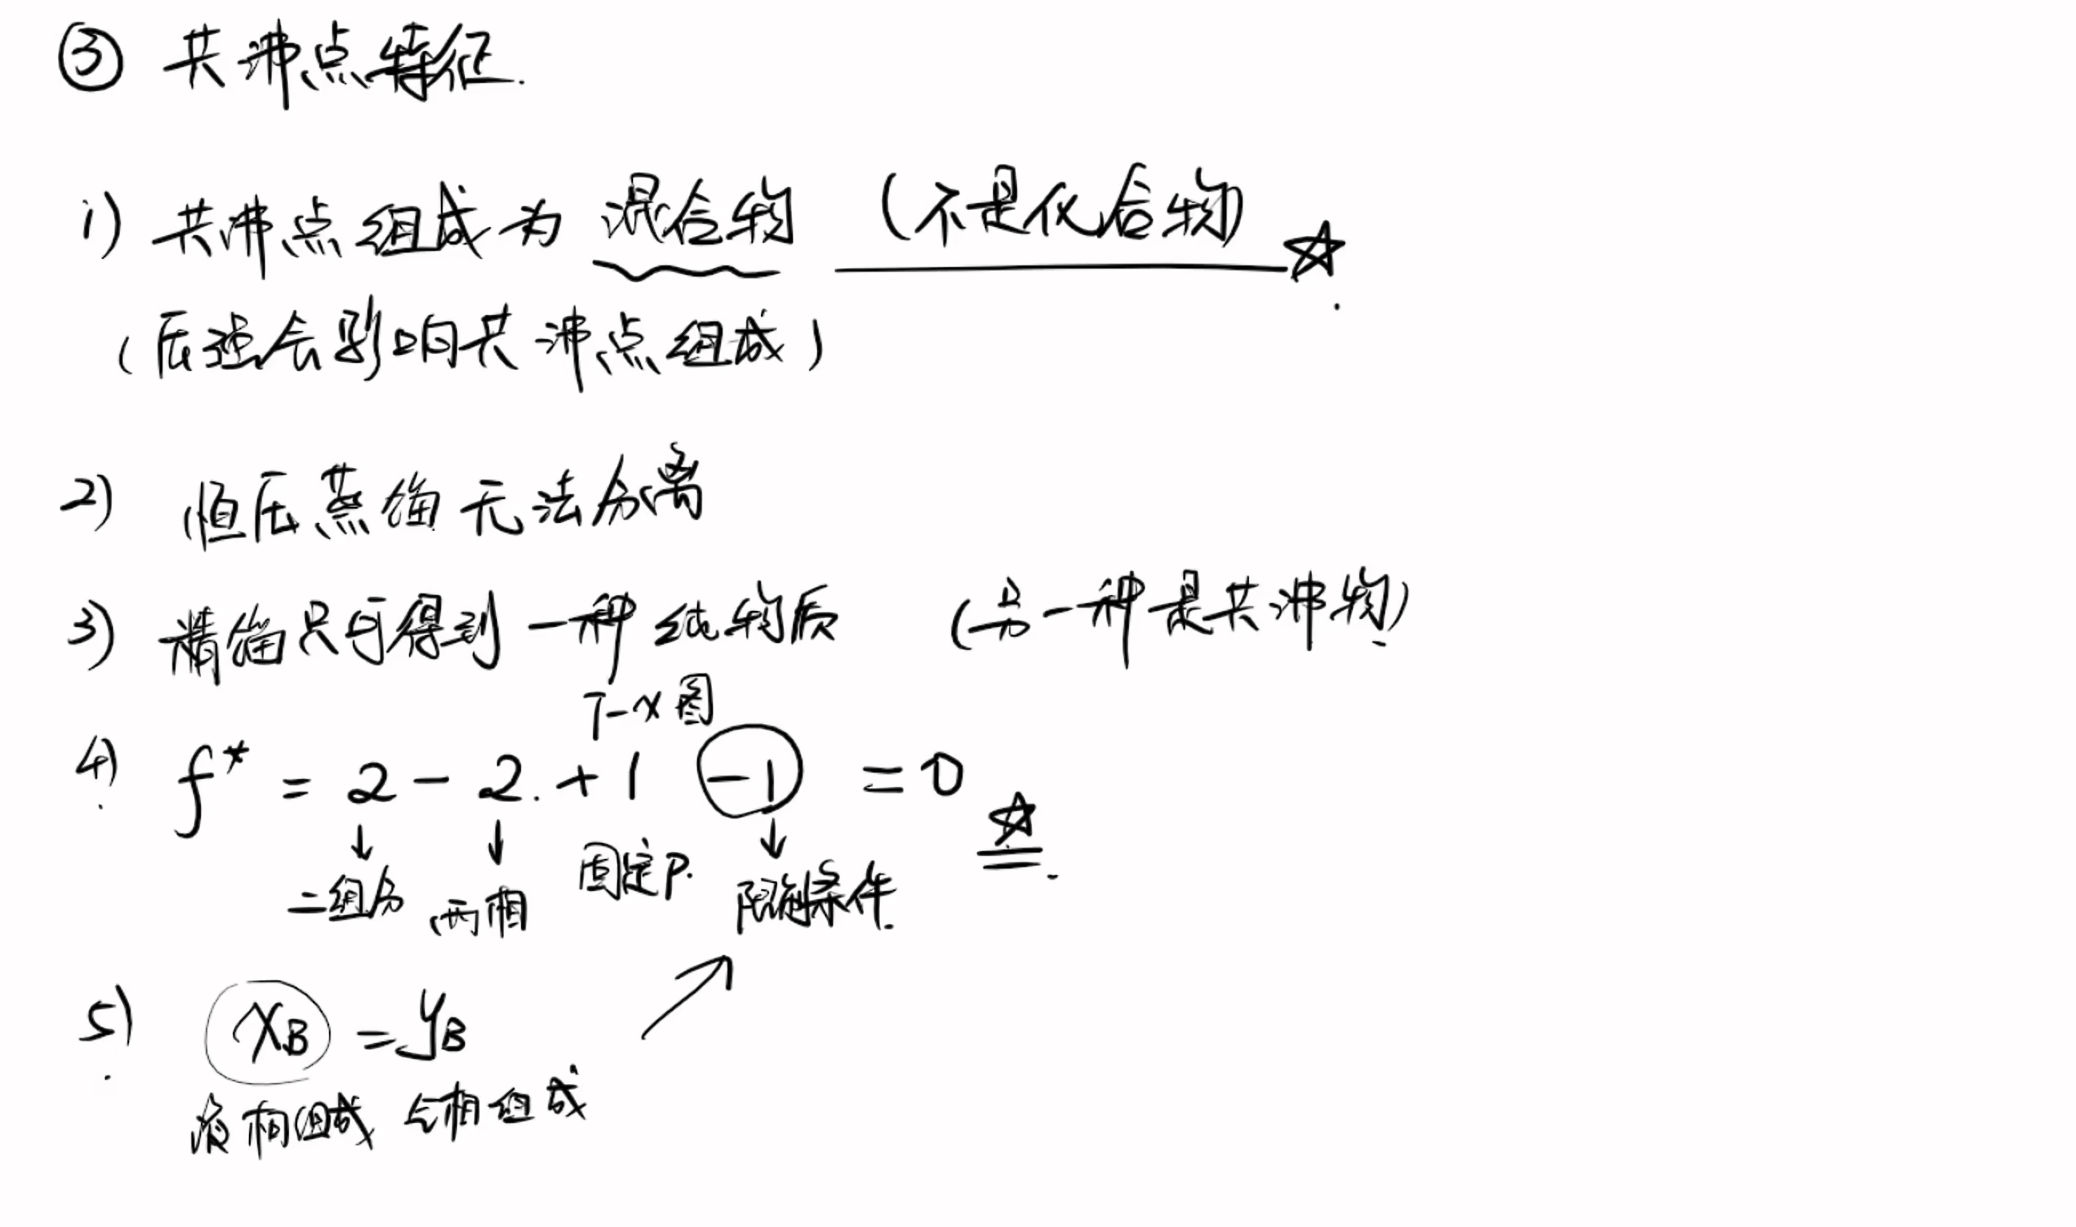 ③ 共沸点特征.
1) 共沸点组成为 混合物 (不是化合物) ☆
(压强会影响共沸点组成)
2) 恒压蒸馏无法分离
3) 精馏只可得到一种纯物质 (另一种是共沸物)
T-x图
4) f* = 2 - 2 + 1 -1 = 0 ☆
↓ ↓ 固定P. ↓
二组分 两相 限制条件.
5) xB = yB
液相组成 气相组成